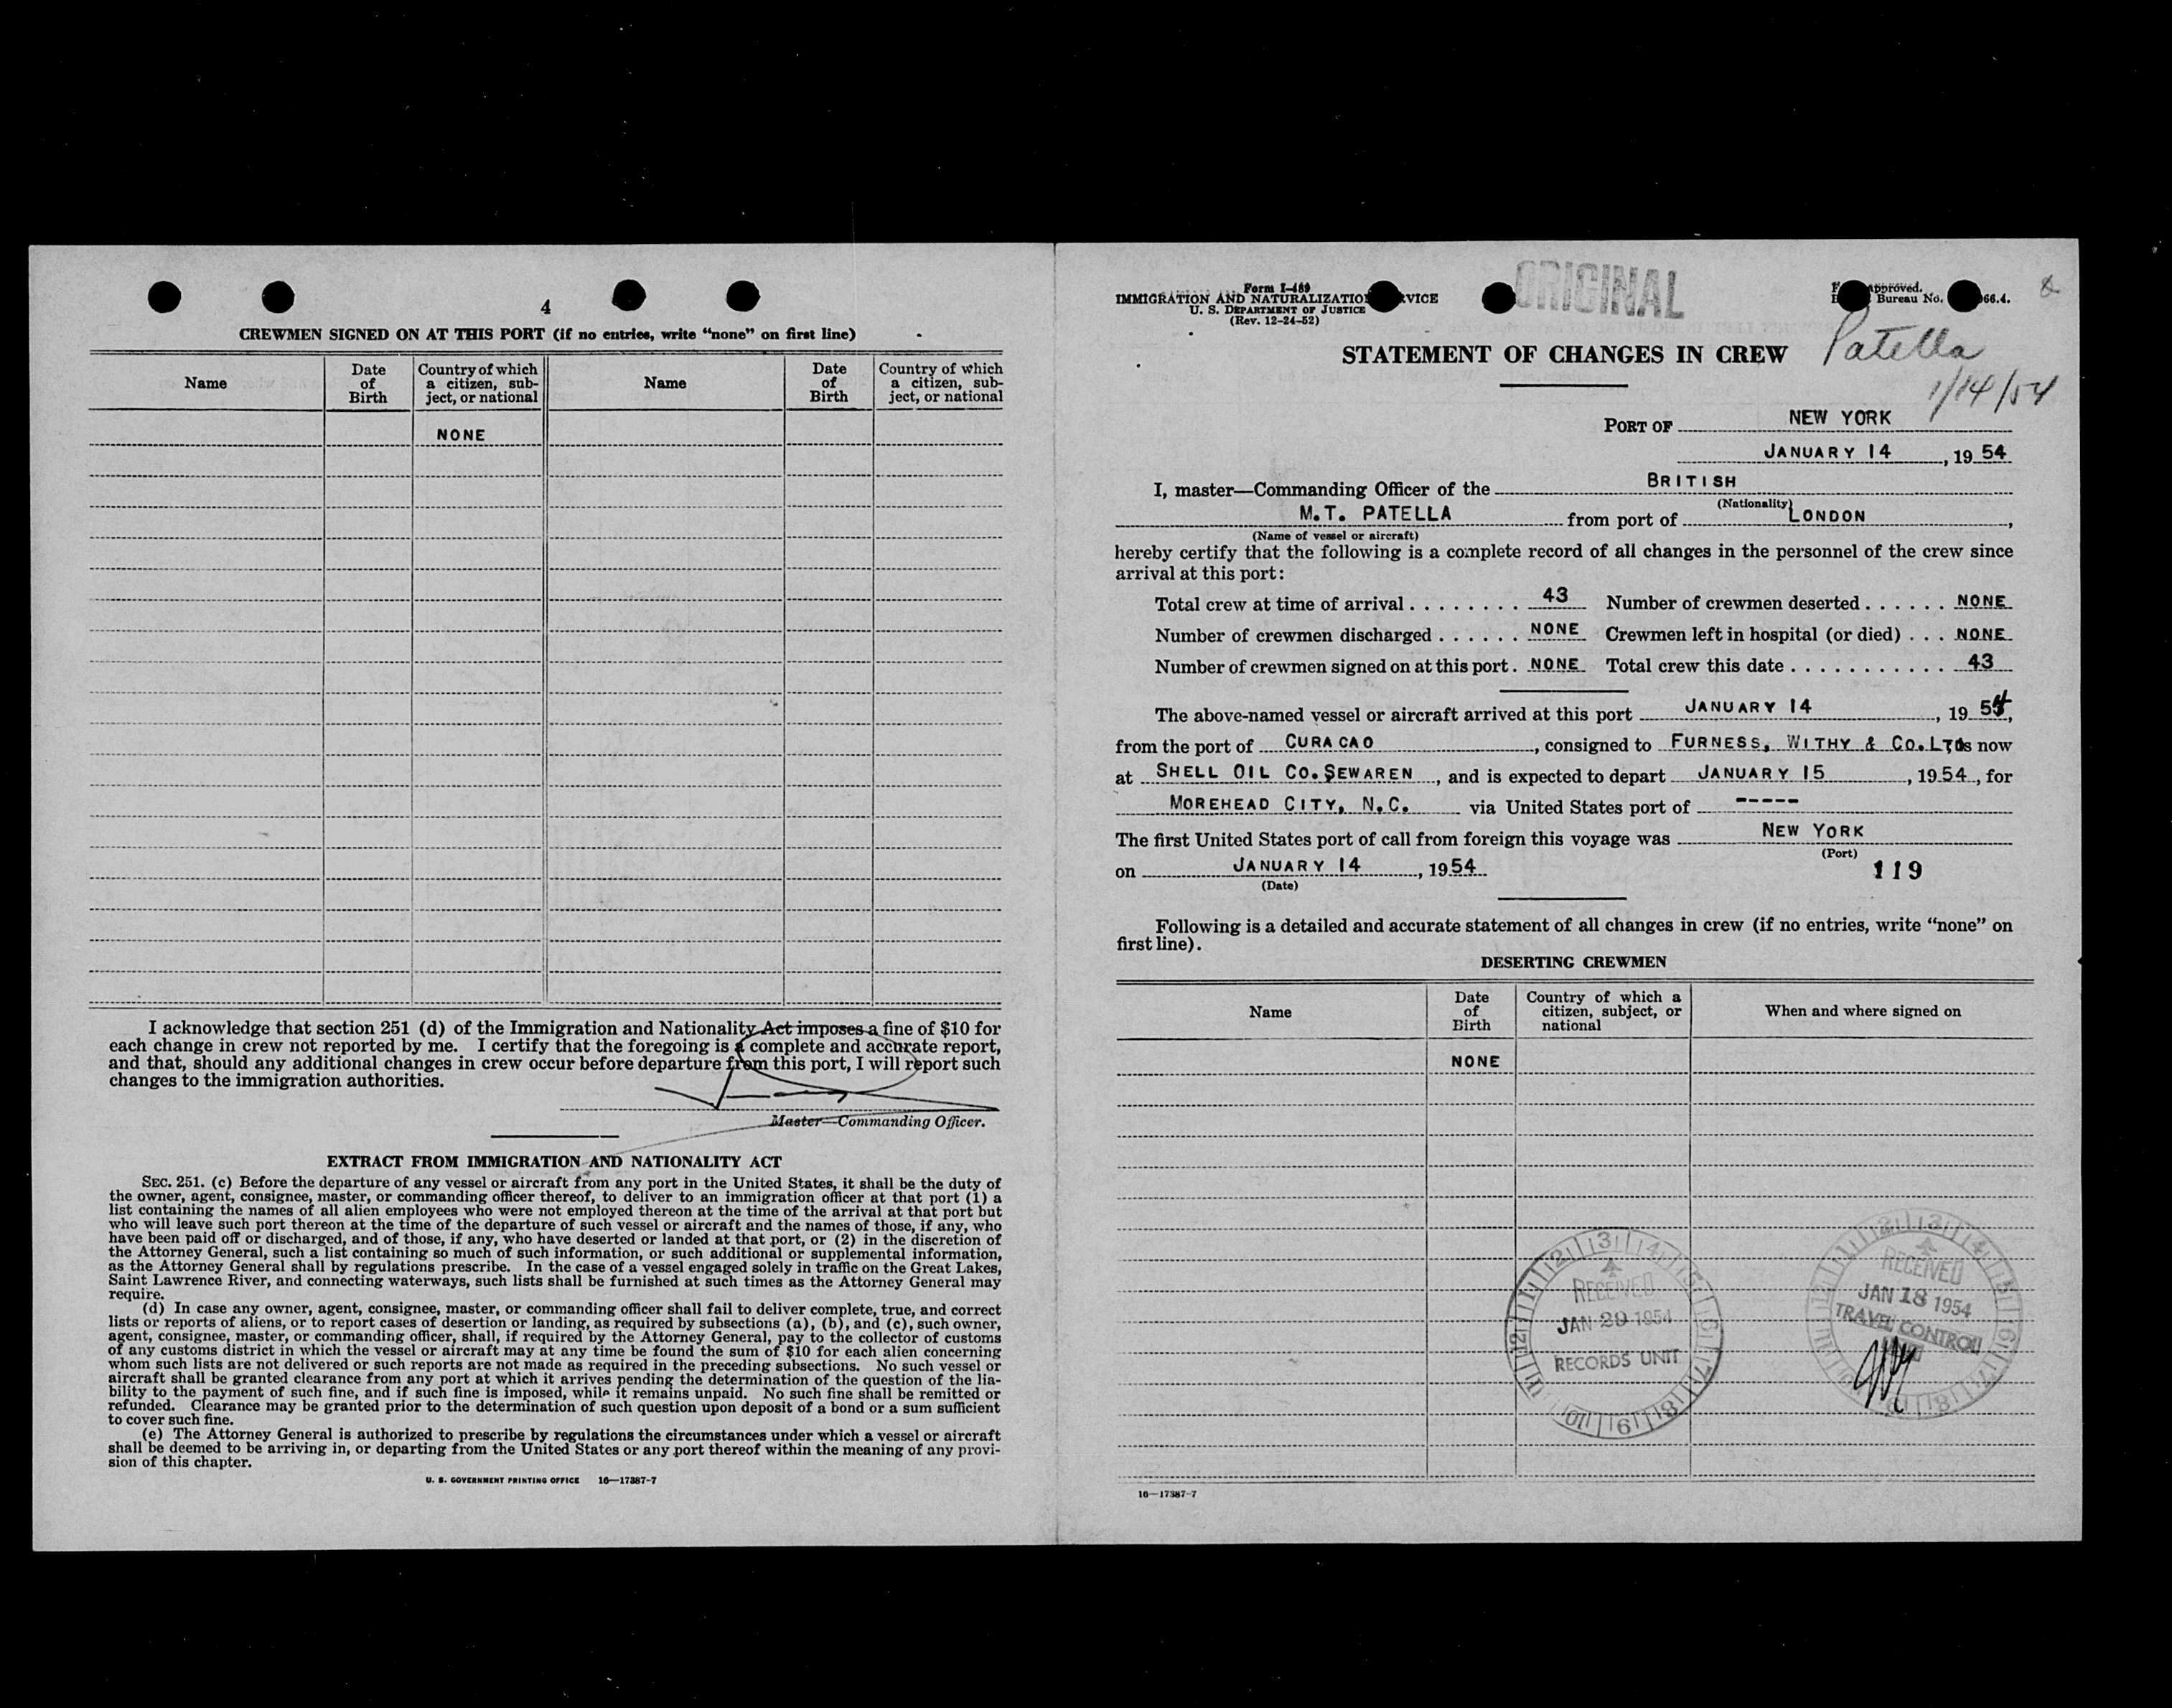 4
CREWMEN SIGNED ON AT THIS PORT (if no entries, write "none" on first line)
Name
Date of Birth
Country of which a citizen, sub-ject, or national
Name
Date of Birth
Country of which a citizen, sub-ject, or national
NONE
I acknowledge that section 251 (d) of the Immigration and Nationality Act imposes a fine of $10 for
each change in crew not reported by me. I certify that the foregoing is a complete and accurate report,
and that, should any additional changes in crew occur before departure from this port, I will report such
changes to the immigration authorities.
Master—Commanding Officer.
EXTRACT FROM IMMIGRATION AND NATIONALITY ACT
SEC. 251. (c) Before the departure of any vessel or aircraft from any port in the United States, it shall be the duty of
the owner, agent, consignee, master, or commanding officer thereof, to deliver to an immigration officer at that port (1) a
list containing the names of all alien employees who were not employed thereon at the time of the arrival at that port but
who will leave such port thereon at the time of the departure of such vessel or aircraft and the names of those, if any, who
have been paid off or discharged, and of those, if any, who have deserted or landed at that port, or (2) in the discretion of
the Attorney General, such a list containing so much of such information, or such additional or supplemental information,
as the Attorney General shall by regulations prescribe. In the case of a vessel engaged solely in traffic on the Great Lakes,
Saint Lawrence River, and connecting waterways, such lists shall be furnished at such times as the Attorney General may
require.
(d) In case any owner, agent, consignee, master, or commanding officer shall fail to deliver complete, true, and correct
lists or reports of aliens, or to report cases of desertion or landing, as required by subsections (a), (b), and (c), such owner,
agent, consignee, master, or commanding officer, shall, if required by the Attorney General, pay to the collector of customs
of any customs district in which the vessel or aircraft may at any time be found the sum of $10 for each alien concerning
whom such lists are not delivered or such reports are not made as required in the preceding subsections. No such vessel or
aircraft shall be granted clearance from any port at which it arrives pending the determination of the question of the lia-
bility to the payment of such fine, and if such fine is imposed, while it remains unpaid. No such fine shall be remitted or
refunded. Clearance may be granted prior to the determination of such question upon deposit of a bond or a sum sufficient
to cover such fine.
(e) The Attorney General is authorized to prescribe by regulations the circumstances under which a vessel or aircraft
shall be deemed to be arriving in, or departing from the United States or any port thereof within the meaning of any provi-
sion of this chapter.
U. S. GOVERNMENT PRINTING OFFICE 16—17387-7
Form I-489
IMMIGRATION AND NATURALIZATIO VICE
U. S. DEPARTMENT OF JUSTICE
(Rev. 12-24-52)
ORIGINAL
pproved.
Bureau No. 66.4.
STATEMENT OF CHANGES IN CREW
Patella
1/14/54
PORT OF NEW YORK
JANUARY 14, 19 54
I, master—Commanding Officer of the BRITISH
(Nationality)
M.T. PATELLA from port of LONDON,
(Name of vessel or aircraft)
hereby certify that the following is a complete record of all changes in the personnel of the crew since
arrival at this port:
Total crew at time of arrival . . . . . . . . 43 Number of crewmen deserted . . . . . . NONE
Number of crewmen discharged . . . . . . NONE Crewmen left in hospital (or died) . . . NONE
Number of crewmen signed on at this port . NONE Total crew this date . . . . . . . . . . . 43
The above-named vessel or aircraft arrived at this port JANUARY 14, 19 54,
from the port of CURACAO, consigned to FURNESS, WITHY & CO. LTD is now
at SHELL OIL CO. SEWAREN, and is expected to depart JANUARY 15, 1954, for
MOREHEAD CITY, N.C. via United States port of -----
The first United States port of call from foreign this voyage was NEW YORK
(Port)
on JANUARY 14, 1954
(Date)
119
Following is a detailed and accurate statement of all changes in crew (if no entries, write "none" on
first line).
DESERTING CREWMEN
Name
Date of Birth
Country of which a citizen, subject, or national
When and where signed on
NONE
RECEIVED
JAN 29 1954
RECORDS UNIT
RECEIVED
JAN 18 1954
TRAVEL CONTROL
16—17387-7